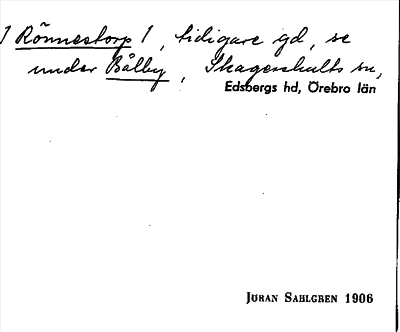 [Rönnestorp], tidigare gd, se
under Bålby, Skagershults sn,
Edsbergs hd, Örebro län
JÖRAN SAHLGREN 1906